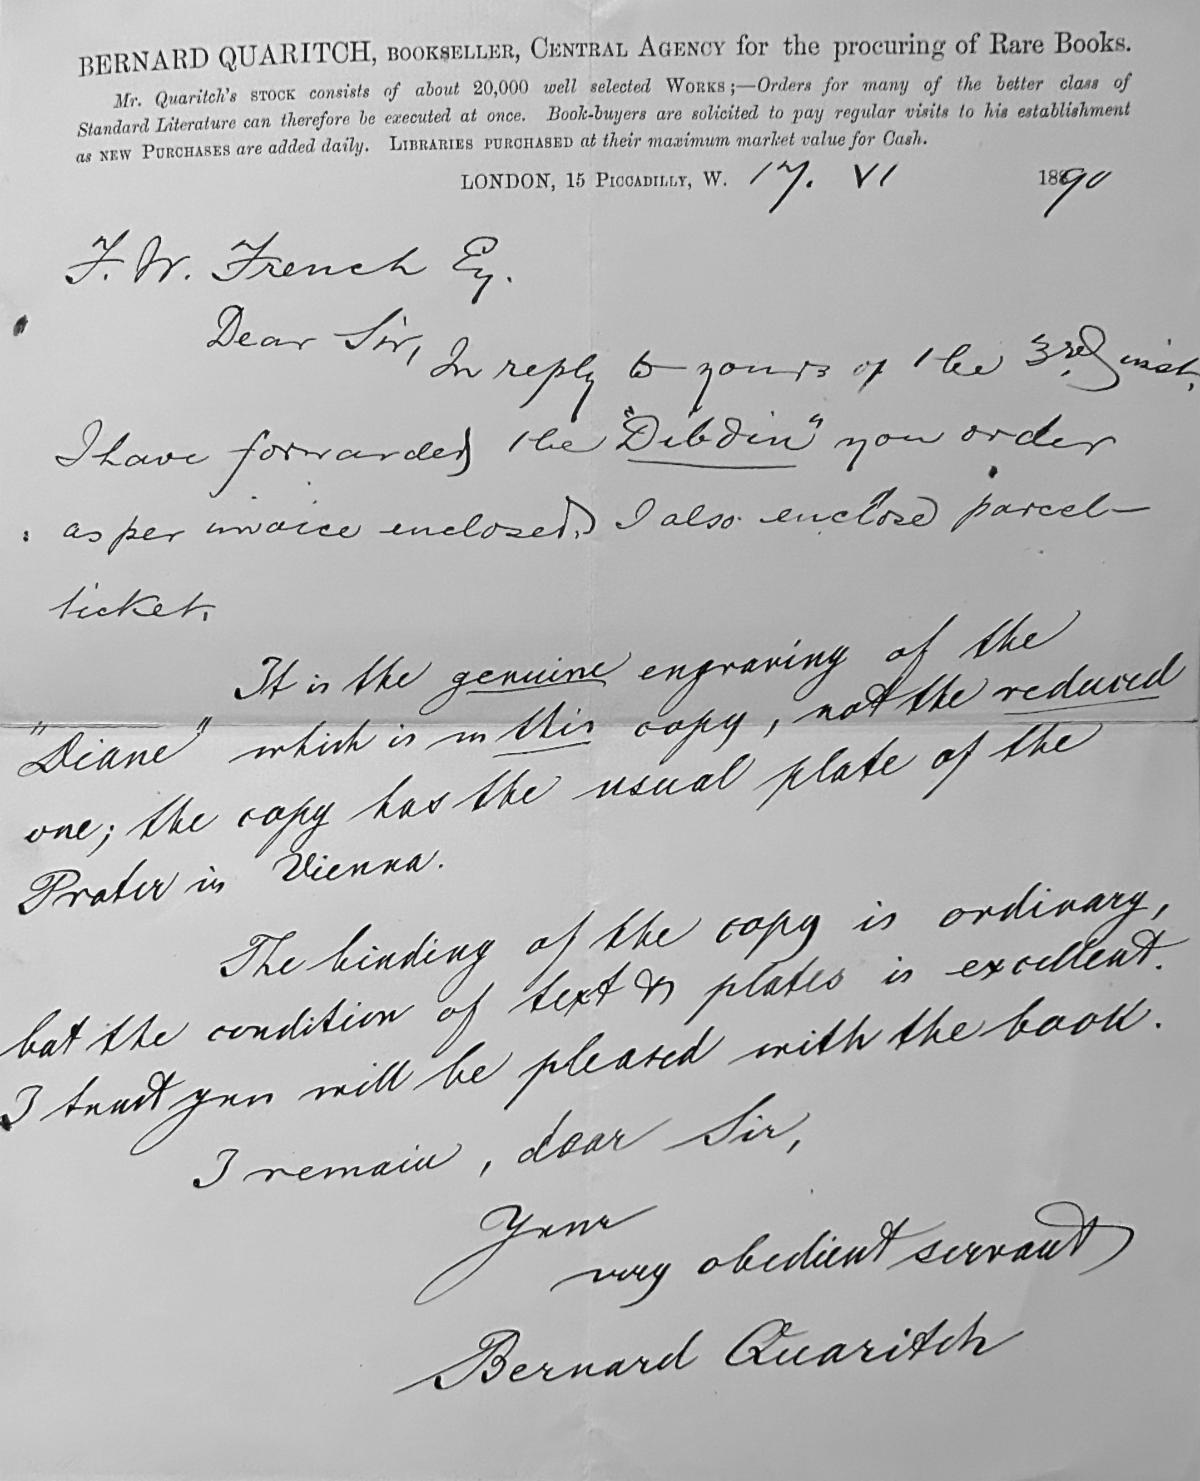 BERNARD QUARITCH, BOOKSELLER, CENTRAL AGENCY for the procuring of Rare Books.
Mr. Quaritch's STOCK consists of about 20,000 well selected WORKS;—Orders for many of the better class of
Standard Literature can therefore be executed at once. Book-buyers are solicited to pay regular visits to his establishment
as NEW PURCHASES are added daily. LIBRARIES PURCHASED at their maximum market value for Cash.
LONDON, 15 PICCADILLY, W. 17. VI 1890
F. W. French Esq.
Dear Sir,
In reply to yours of the 3rd inst.
I have forwarded the "Dibdin" you order
as per invoice enclosed. I also enclose parcel-
ticket.
It is the genuine engraving of the
"Diane" which is in this copy, not the reduced
one; the copy has the usual plate of the
Prater in Vienna.
The binding of the copy is ordinary,
but the condition of text & plates is excellent.
I trust you will be pleased with the book.
I remain, dear Sir,
Your
very obedient servant
Bernard Quaritch